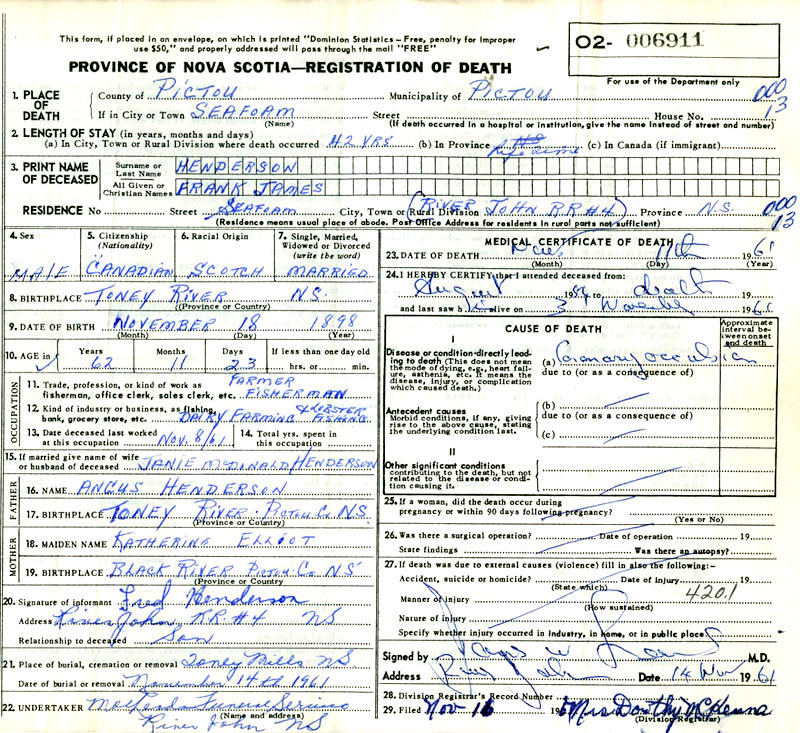 This form, if placed in an envelope, on which is printed "Dominion Statistics – Free, penalty for improper
use $50," and properly addressed will pass through the mail "FREE"
O2- 006911
PROVINCE OF NOVA SCOTIA—REGISTRATION OF DEATH
For use of the Department only
1. PLACE OF DEATH
County of PICTOU Municipality of PICTOU 000
If in City or Town SEAFOAM Street House No. 13
(Name) (If death occurred in a hospital or institution, give the name instead of street and number)
2. LENGTH OF STAY (in years, months and days)
(a) In City, Town or Rural Division where death occurred 42 YRS (b) In Province lifetime (c) In Canada (if immigrant)
3. PRINT NAME OF DECEASED
Surname or Last Name HENDERSON
All Given or Christian Names FRANK JAMES
RESIDENCE No Street SEAFOAM City, Town or (Rural Division RIVER JOHN RR#4) Province N.S. 000
(Residence means usual place of abode. Post Office Address for residents in rural parts not sufficient) 13
4. Sex
MALE
5. Citizenship (Nationality)
CANADIAN
6. Racial Origin
SCOTCH
7. Single, Married, Widowed or Divorced (write the word)
MARRIED
8. BIRTHPLACE TONEY RIVER N.S.
(Province or Country)
9. DATE OF BIRTH NOVEMBER 18 1898
(Month) (Day) (Year)
10. AGE in Years Months Days If less than one day old
62 11 23 hrs. or min.
OCCUPATION
11. Trade, profession, or kind of work as FARMER
fisherman, office clerk, sales clerk, etc. FISHERMAN
12. Kind of industry or business, as fishing, & LOBSTER
bank, grocery store, etc. DAIRY FARMING FISHING
13. Date deceased last worked at this occupation NOV. 8/61
14. Total yrs. spent in this occupation
15. If married give name of wife or husband of deceased JANIE McDONALD HENDERSON
FATHER
16. NAME ANGUS HENDERSON
17. BIRTHPLACE TONEY RIVER PICTOU Co N.S.
(Province or Country)
MOTHER
18. MAIDEN NAME KATHERINE ELLIOT
19. BIRTHPLACE BLACK RIVER PICTOU Co NS
(Province or Country)
20. Signature of informant Fred Henderson
Address River John RR#4 NS
Relationship to deceased Son
21. Place of burial, cremation or removal Toney Mills NS
Date of burial or removal November 14th 1961
22. UNDERTAKER Funeral Service
(Name and address)
River John NS
MEDICAL CERTIFICATE OF DEATH
23. DATE OF DEATH Nov 11th 1961
(Month) (Day) (Year)
24. I HEREBY CERTIFY that I attended deceased from:
August 19 to death 19
and last saw h alive on 3 November 1961
CAUSE OF DEATH
Approximate interval between onset and death
I
Disease or condition directly leading to death (This does not mean the mode of dying, e.g., heart failure, asthenia, etc. It means the disease, injury, or complication which caused death.)
(a) Coronary occulsion
due to (or as a consequence of)
Antecedent causes
Morbid conditions, if any, giving rise to the above cause, stating the underlying condition last.
(b)
due to (or as a consequence of)
(c)
II
Other significant conditions
contributing to the death, but not related to the disease or condition causing it.
25. If a woman, did the death occur during pregnancy or within 90 days following pregnancy?
(Yes or No)
26. Was there a surgical operation? Date of operation 19
State findings Was there an autopsy?
27. If death was due to external causes (violence) fill in also the following:-
Accident, suicide or homicide? Date of injury 19
(State which)
Manner of injury 420.1
(How sustained)
Nature of injury
Specify whether injury occurred in industry, in home, or in public place
Signed by M.D.
Address River John Date 14 Nov 1961
28. Division Registrar's Record Number
29. Filed Nov 16 196 Mrs Dorothy McKenna
(Division Registrar)